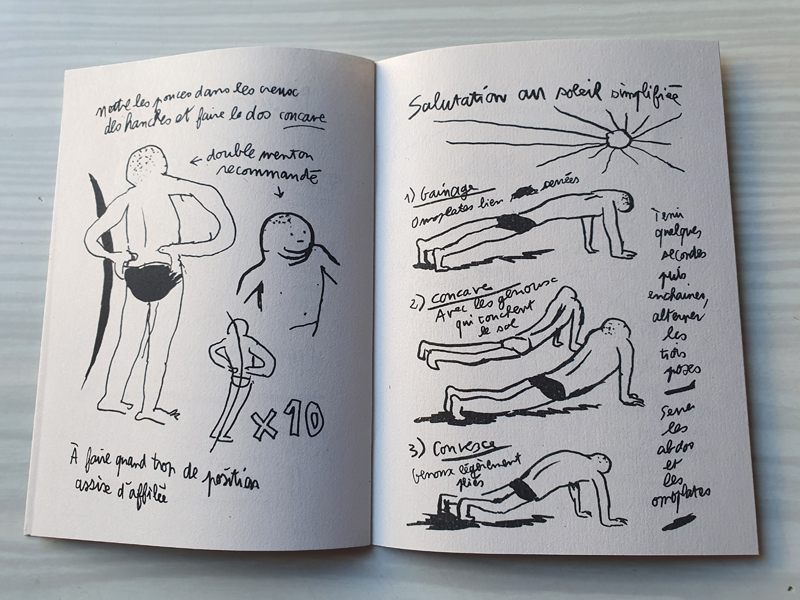 Mettre les pouces dans les creux
des hanches et faire le dos concave
← double menton
recommandé
×10
À faire quand trop de position
assise d'affilée
Salutation au soleil simplifiée
1) Gainage
Omoplates bien serrées
2) Concave
Avec les genoux
qui touchent
le sol
3) Convexe
Genoux légèrement
pliés
Tenir
quelques
secondes
puis
enchainer,
alterner
les
trois
poses
Serrer
les
abdos
et
les
omoplates